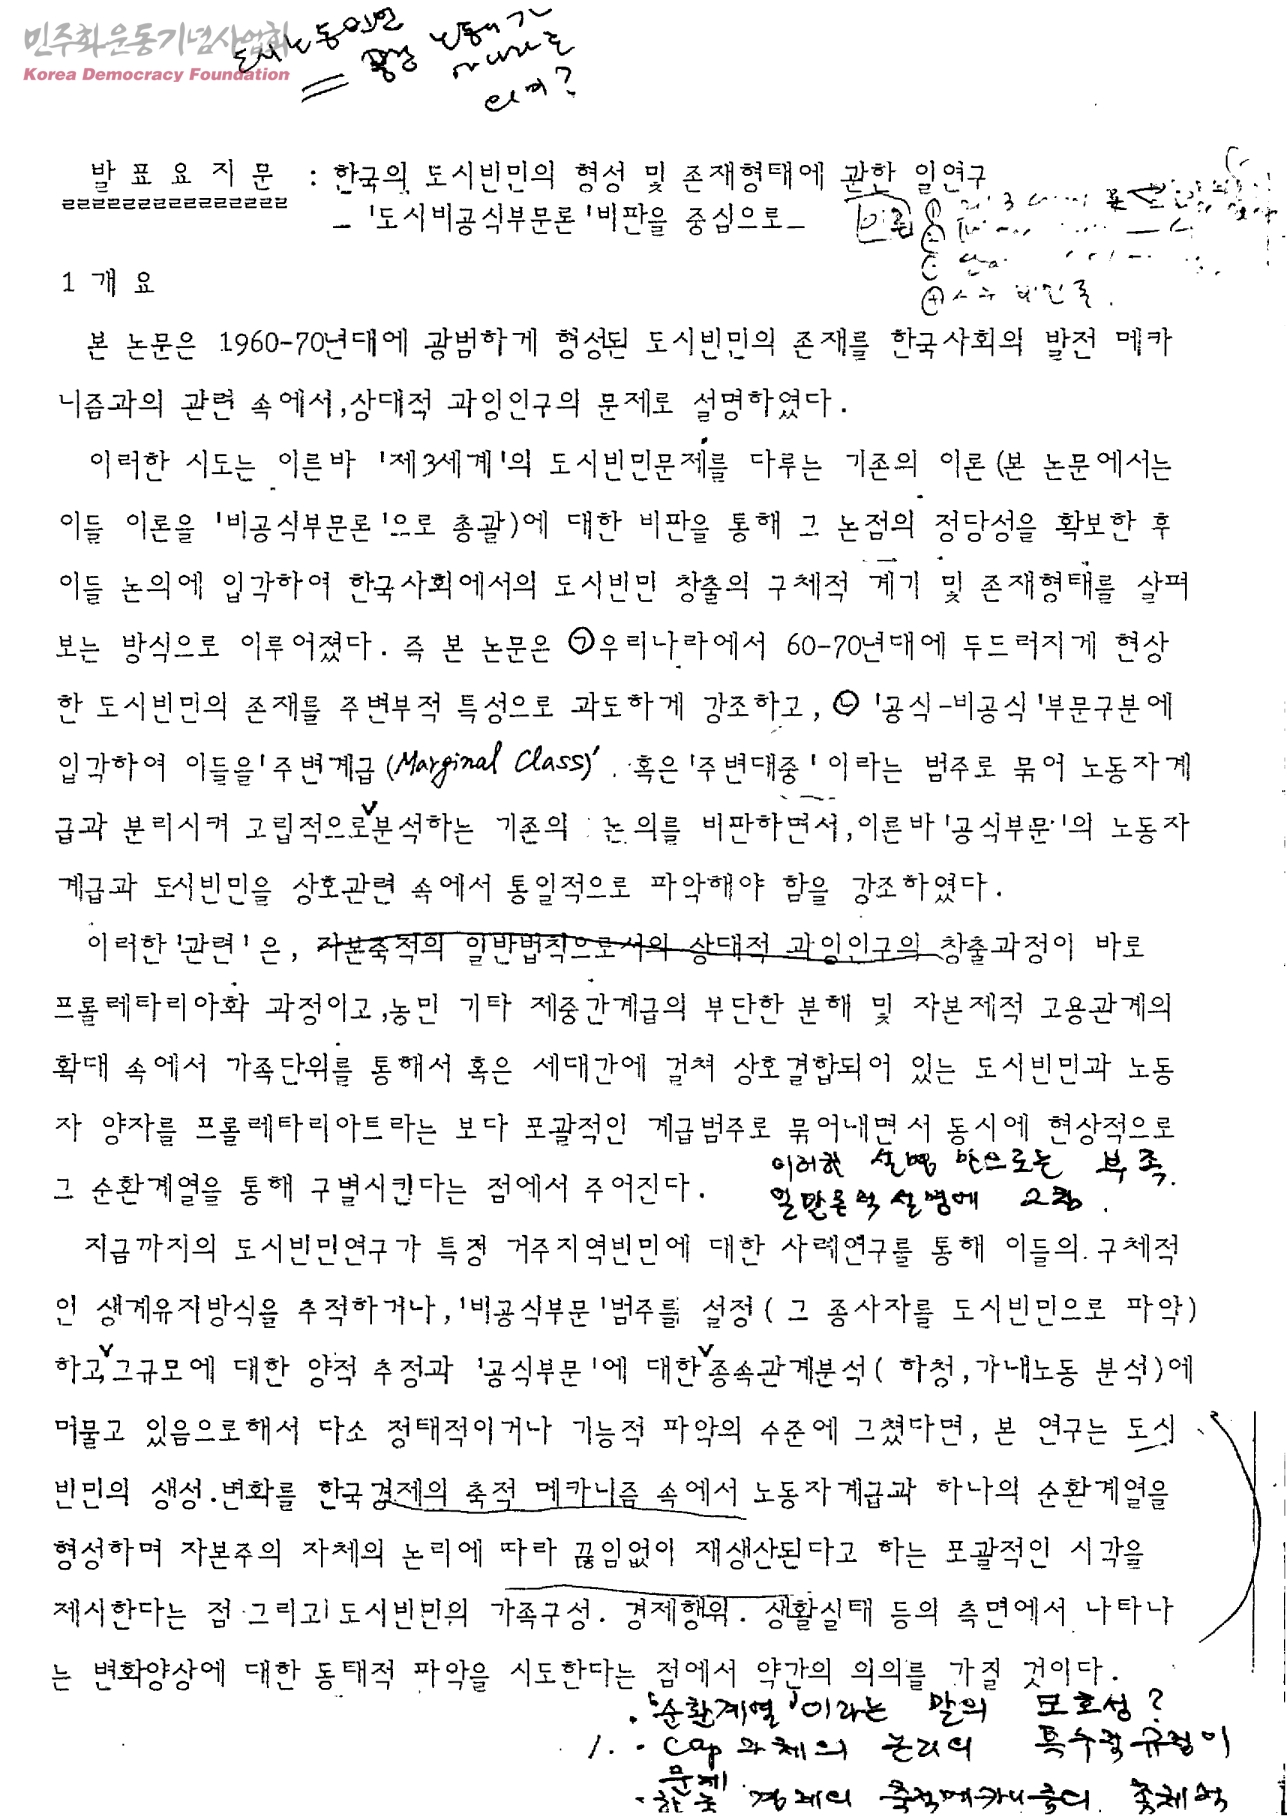 민주화운동기념사업회
Korea Democracy Foundation
발 표 요 지 문 : 한국의 도시빈민의 형성 및 존재형태에 관한 일연구
- '도시비공식부문론'비판을 중심으로-
이론
1 개 요
본 논문은 1960-70년대에 광범하게 형성된 도시빈민의 존재를 한국사회의 발전 메카
니즘과의 관련 속에서,상대적 과잉인구의 문제로 설명하였다.
이러한 시도는 이른바 '제3세계'의 도시빈민문제를 다루는 기존의 이론(본 논문에서는
이들 이론을 '비공식부문론'으로 총괄)에 대한 비판을 통해 그 논점의 정당성을 확보한 후
이들 논의에 입각하여 한국사회에서의 도시빈민 창출의 구체적 계기 및 존재형태를 살펴
보는 방식으로 이루어졌다. 즉 본 논문은 ㉠우리나라에서 60-70년대에 두드러지게 현상
한 도시빈민의 존재를 주변부적 특성으로 과도하게 강조하고, ㉡ '공식-비공식'부문구분에
입각하여 이들을'주변계급(Marginal Class)' 혹은'주변대중'이라는 범주로 묶어 노동자계
급과 분리시켜 고립적으로∨분석하는 기존의 논의를 비판하면서,이른바'공식부문'의 노동자
계급과 도시빈민을 상호관련 속에서 통일적으로 파악해야 함을 강조하였다.
이러한'관련'은, 자본축적의 일반법칙으로서의 상대적 과잉인구의 창출과정이 바로
프롤레타리아화 과정이고,농민 기타 제중간계급의 부단한 분해 및 자본제적 고용관계의
확대 속에서 가족단위를 통해서 혹은 세대간에 걸쳐 상호결합되어 있는 도시빈민과 노동
자 양자를 프롤레타리아트라는 보다 포괄적인 계급범주로 묶어내면서 동시에 현상적으로
그 순환계열을 통해 구별시킨다는 점에서 주어진다.
이러한 설명 만으로는 부족.
일반론적 설명에 그침.
지금까지의 도시빈민연구가 특정 거주지역빈민에 대한 사례연구를 통해 이들의 구체적
인 생계유지방식을 추적하거나,'비공식부문'범주를 설정( 그 종사자를 도시빈민으로 파악)
하고,∨그규모에 대한 양적 추정과 '공식부문'에 대한∨종속관계분석( 하청,가내노동 분석)에
머물고 있음으로해서 다소 정태적이거나 기능적 파악의 수준에 그쳤다면, 본 연구는 도시
빈민의 생성.변화를 한국경제의 축적 메카니즘 속에서 노동자계급과 하나의 순환계열을
형성하며 자본주의 자체의 논리에 따라 끊임없이 재생산된다고 하는 포괄적인 시각을
제시한다는 점 그리고 도시빈민의 가족구성. 경제행위. 생활실태 등의 측면에서 나타나
는 변화양상에 대한 동태적 파악을 시도한다는 점에서 약간의 의의를 가질 것이다.
. 「순환계열」이라는 말의 모호성?
1. . Cap 자체의 논리의 특수적규정이
문제
. 한국 경제의 축적메카니즘의